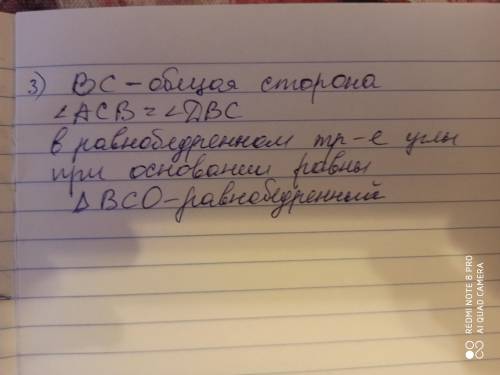 3) BC – общая сторона
∠ACB = ∠DBC
в равнобедренном тр-е углы
при основании равны
△BCO – равнобедренный
REDMI NOTE 8 PRO
AI QUAD CAMERA